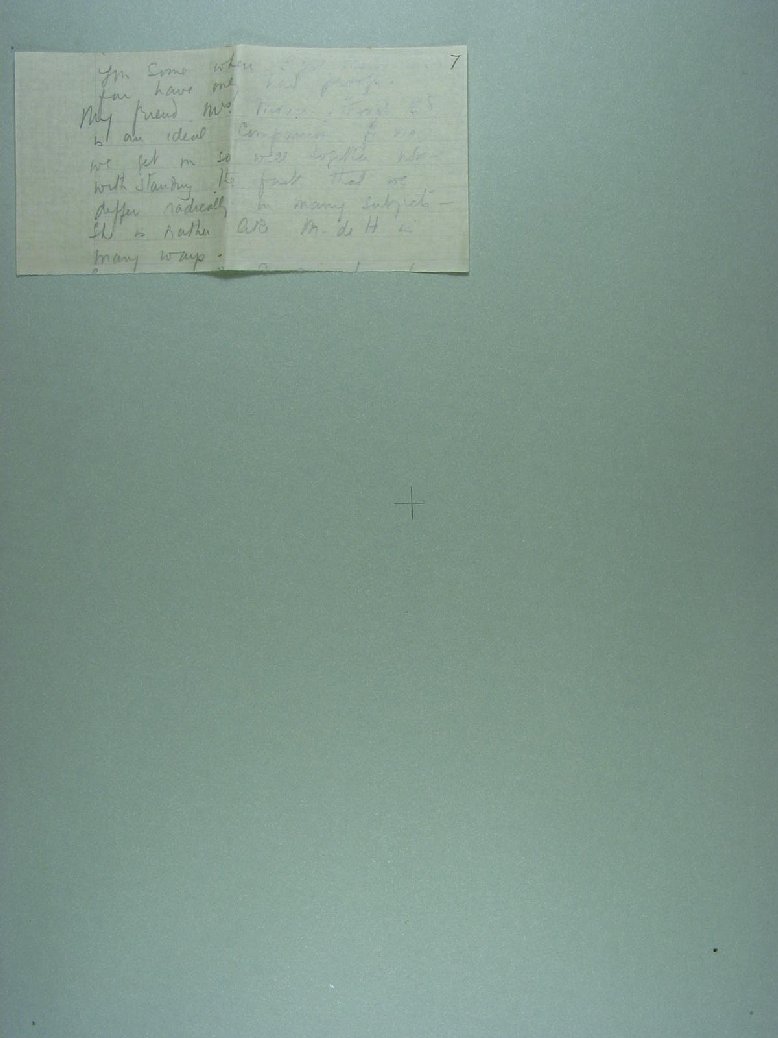 7
you some when
you have only had proofs.
My friend Mrs
is an ideal Companion to me
we get on so well together not
with standing the fact that we
differ radically in many subjects –
She is rather M. de H in
many ways.